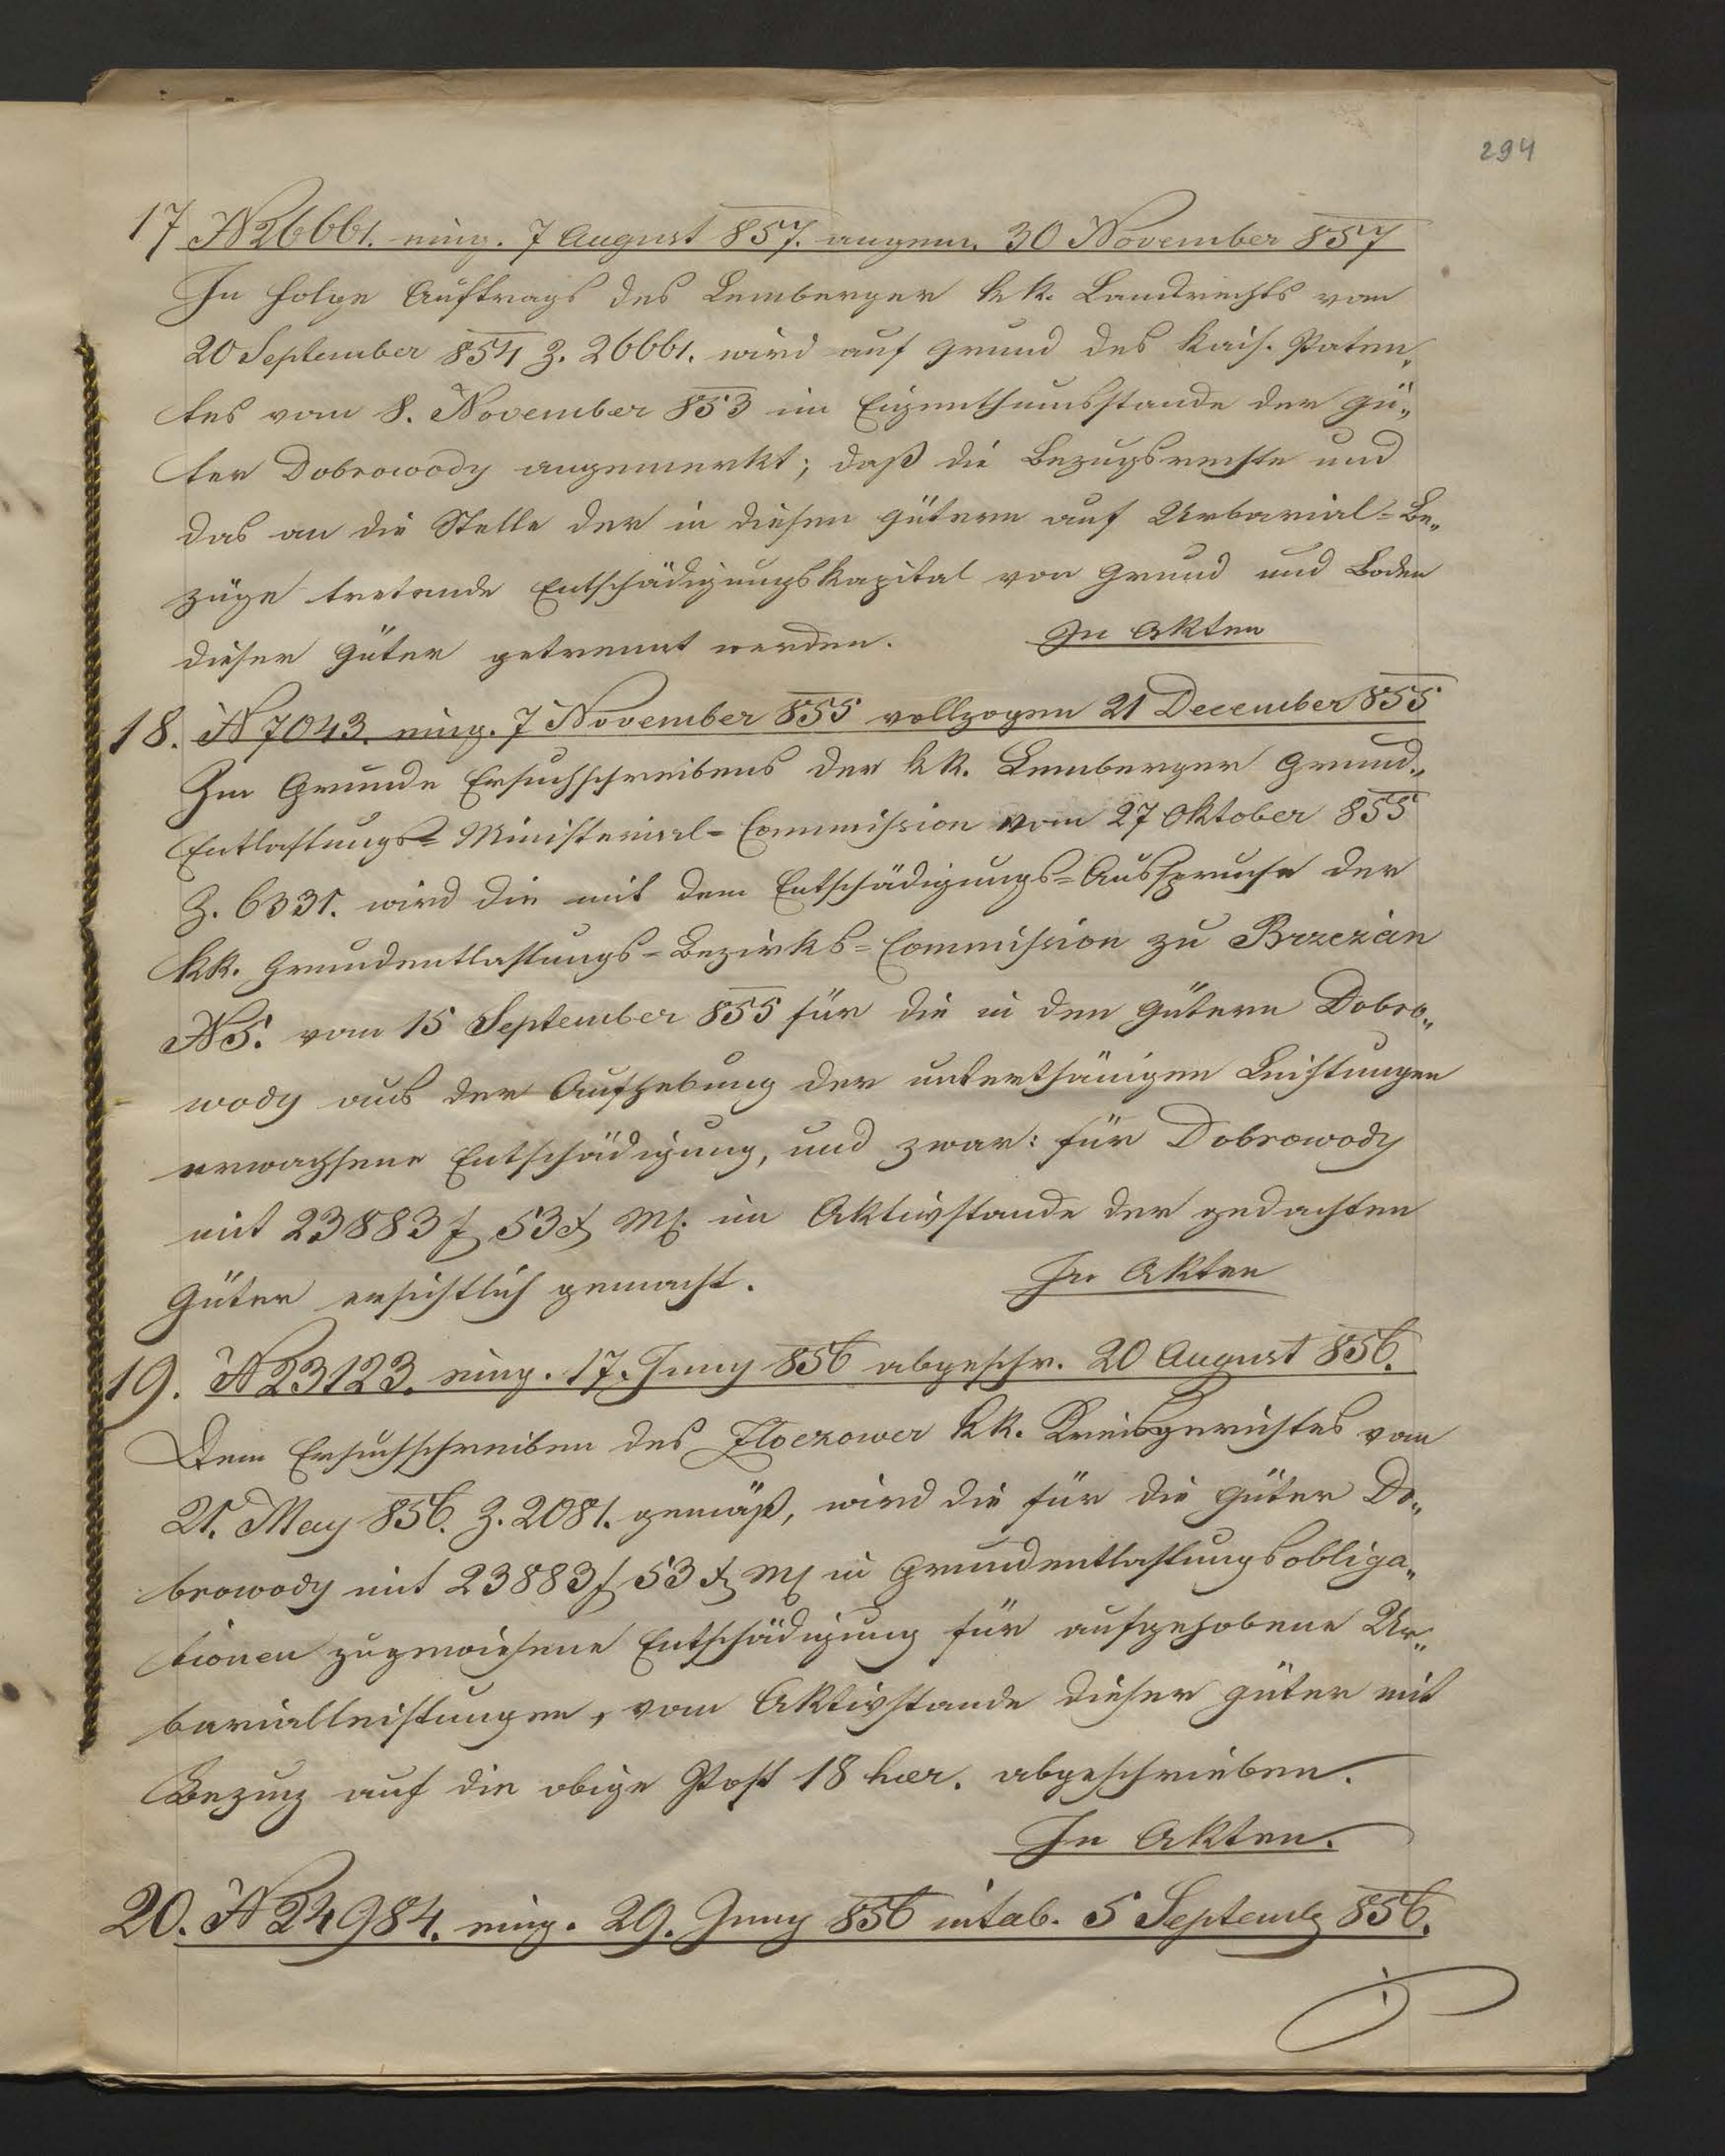 294
17 N 26661. eing. 7 August 857. angem. 30 November 857
In Folge Auftrags des Lemberger kk. Landrechts vom
20 September 854 Z. 26661. wird auf Grund des kais. Paten„
tes vom 8. November 853 im Eigenthumsstande der Gü„
ter Dobrowody angemerkt; daß die Bezugsrechte und
das an die Stelle der in diesen Gütern auf Urbarial-Be„
züge tretende Entschädigungskapital von Grund und Boden
dieser Güter getrennt werden. In Akten
18. N 7043. eing. 7 November 855 vollzogen 21 December 855
Im Grunde Ersuchschreibens der kk. Lemberger Grund„
Entlastungs-Ministerial-Commission vom 27 Oktober 855
Z. 6331. wird die mit dem Entschädigungs-Ausspruche der
kk. Grundentlastungs-Bezirks-Commission zu Brzezan
N 5. vom 15 September 855 für die in den Gütern Dobro„
wody aus der Aufhebung der unterthänigen Leistungen
erwachsene Entschädigung, und zwar: für Dobrowody
mit 23883 f 53 x Mz. im Aktivstande der gedachten
Güter ersichtlich gemacht. In Akten
19. N 23123. eing. 17. Juny 856 abgeschr. 20 August 856.
Dem Ersuchschreiben des Zloczower kk. Kreisgerichtes vom
21. May 856. Z. 2081. gemäß, wird die für die Güter Do„
browody mit 23883 f 53 x Mz in Grundentlastungsobliga„
tionen zugewiesene Entschädigung für aufgehobene Ur„
barialleistungen, vom Aktivstande dieser Güter mit
Bezug auf die obige Post 18 haer. abgeschrieben.
In Akten.
20. N 24984. eing. 29. Juny 856 intab. 5 Septemb 856.